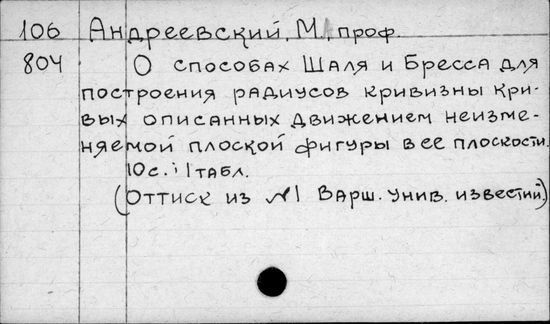 106 Андреевский, М, проф.
804 О способах Шаля и Бресса для
построения радиусов кривизны кри-
вых описанных движением неизме-
няемой плоской фигуры в ее плоскости.
10с. i 1 табл.
(Оттиск из №1 Варш. унив. известий.)